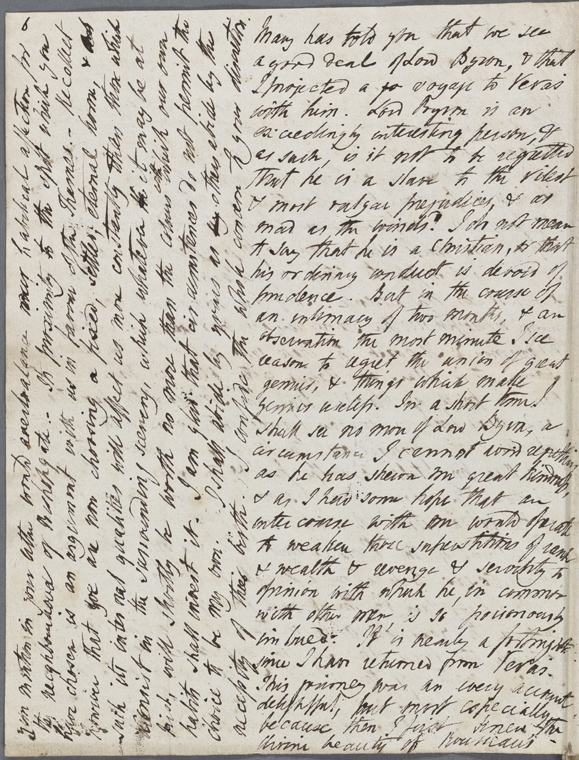 you mention in your letter would overbalance habitual affection for
the neighbourhood of Bishopgate. Its proximity to the spot which you
have chosen is an argument with us in favour of the Thames - Recollect
however that you are now choosing a fixed, settled, eternal home, & as
such its internal qualities will affect us more constantly than those which
consist in the surrounding scenery, which whatever it may be at
first will shortly be worth no more than the colours with which our own
habits shall invest it. I am glad that circumstances do not permit the
choice to be my own. I shall abide by yours as others abide by the
necessity of their birth. I confide the whole concern to your direction
Mary has told you that we see
a good deal of Lord Byron, & that
I projected a voyage to Vevai
with him. Lord Byron is an
exceedingly interesting person, &
as such, is it not to be regretted
that he is a slave to the vilest
& most vulgar prejudices, & as
mad as the winds? I do not mean
to say that he is a Christian, or that
his ordinary conduct is devoid of
prudence. But in the course of
an intimacy of two months, & an
observation the most minute I see
reason to regret the union of great
genius, & things which make
genius useless. In a short time I
shall see no more of Lord Byron, a
circumstance I cannot avoid regretting
as he has shewn me great kindness,
& as I had some hope that an
intercourse with me would operate
to weaken those superstitions of rank
& wealth & revenge & servility to
opinion with which he, in common
with other men is so poisonously
imbued. It is nearly a fortnight
since I have returned from Vevai.
This journey was on every account
delightful but most especially
because then I first knew the
divine beauty of Rousseau's